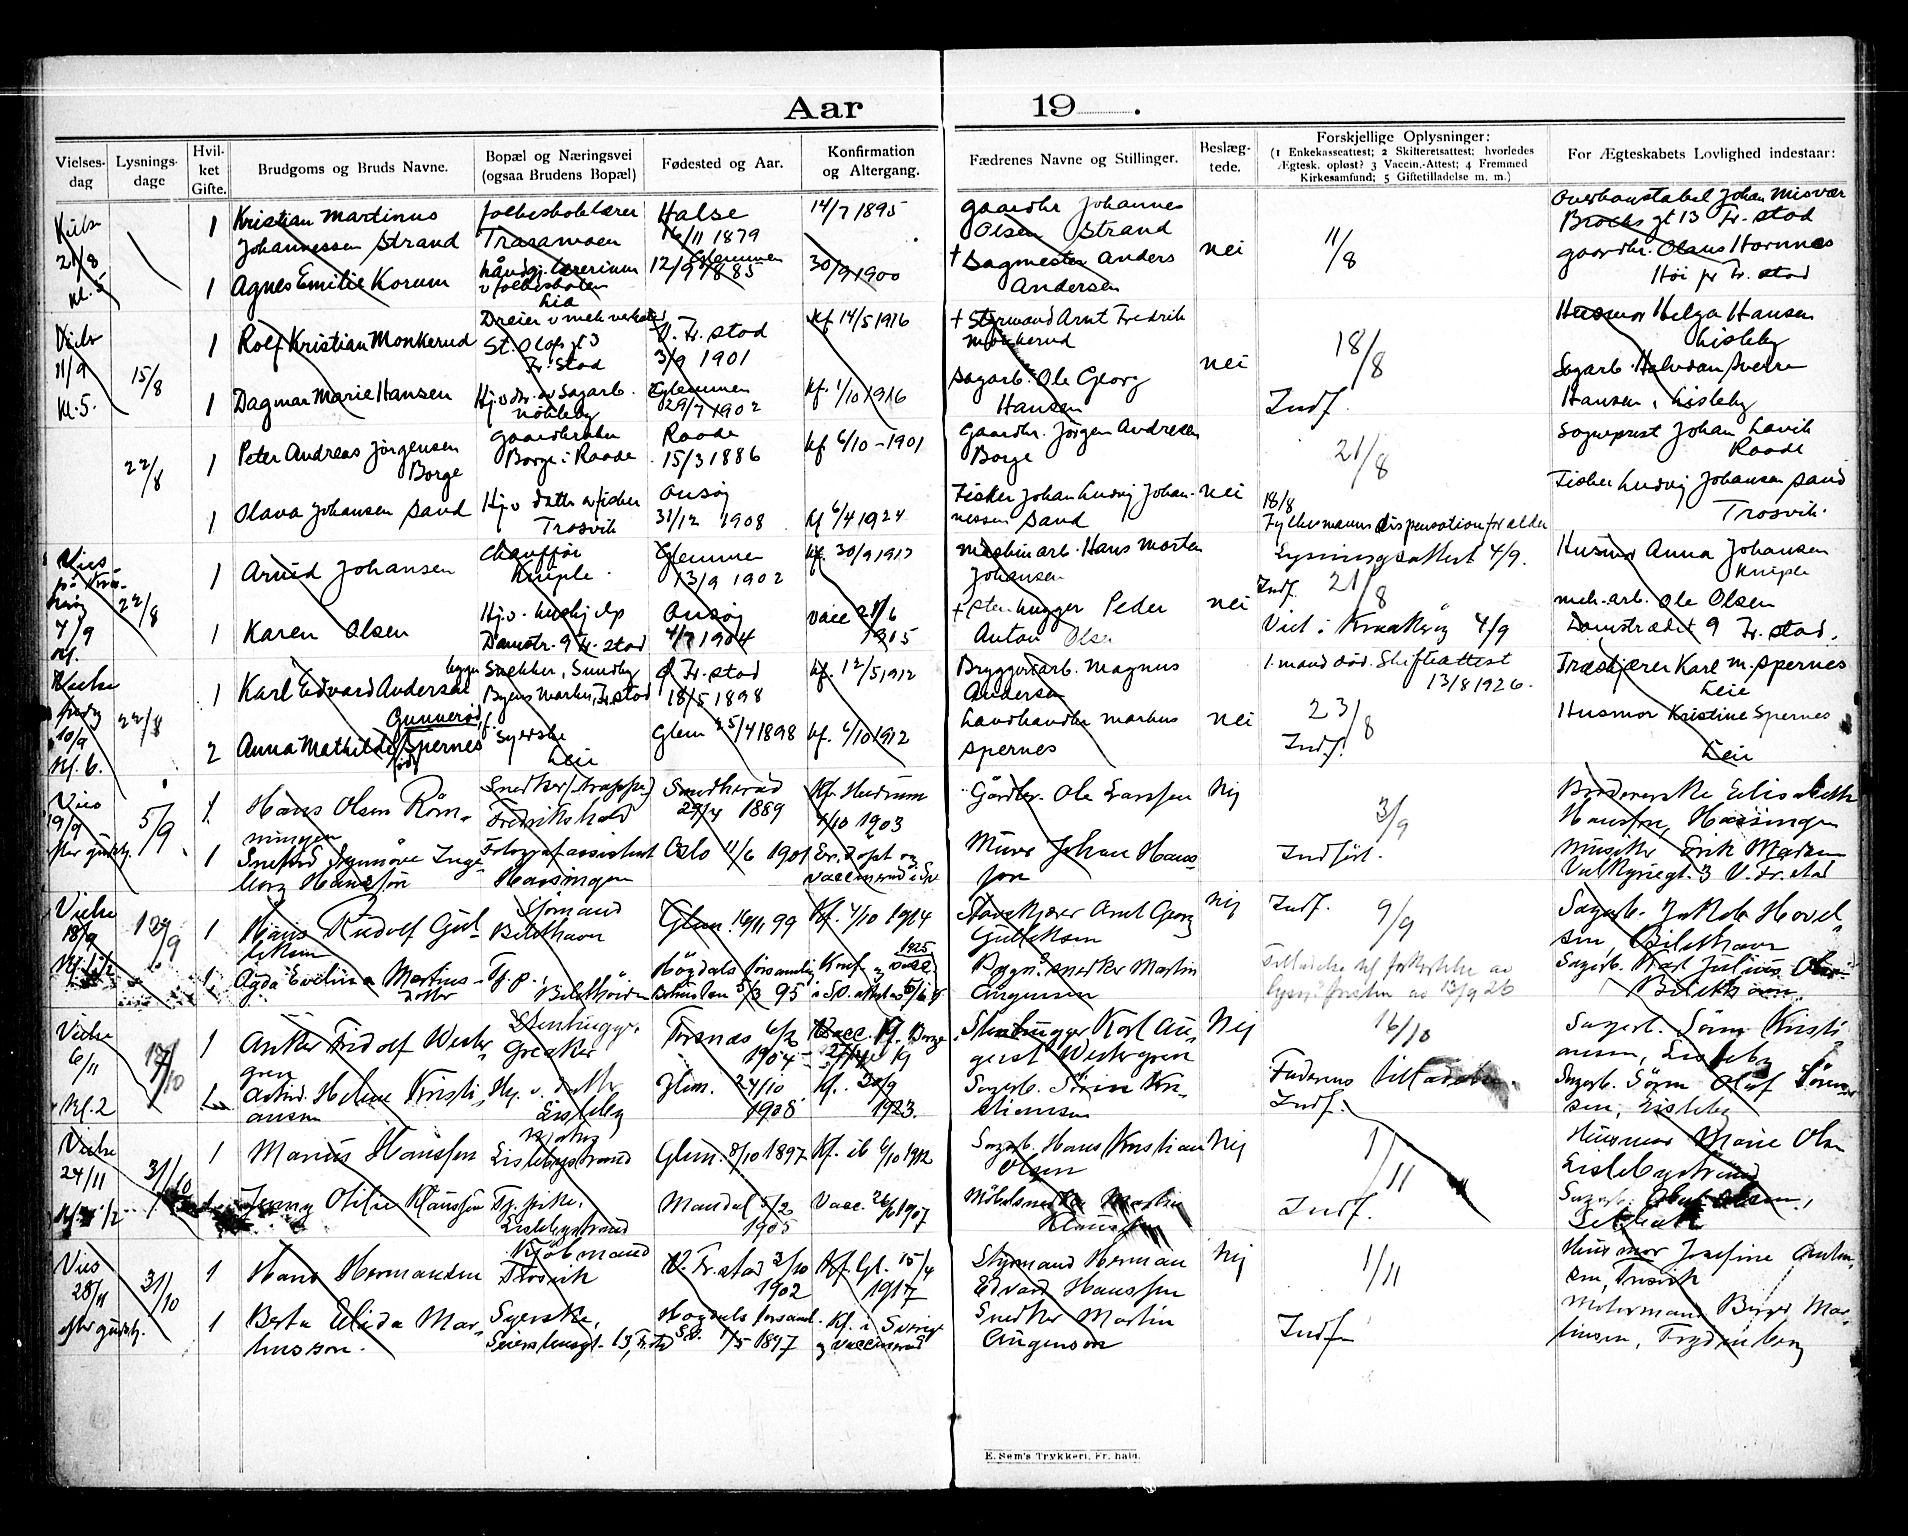 Aar 19 .
Vielses-dag
Lysnings-dage
Hvil-ket Gifte.
Brudgoms og Bruds Navne.
Bopæl og Næringsvei (ogsaa Brudens Bopæl)
Fødested og Aar.
Konfirmation og Altergang.
Fædrenes Navne og Stillinger.
Beslæg-tede.
Forskjellige Oplysninger:
(1 Enkekasseattest; 2 Skifteretsattest; hvorledes
Ægtesk. opløst? 3 Vaccin.-Attest; 4 Fremmed
Kirkesamfund; 5 Giftetilladelse m. m.)
For Ægteskabets Lovlighed indestaar:
21/8
kl. 5
1
Kristian Martinus
Johannessen Strand
Halse
16/11 1879
14/7 1895
gaardbr Johannes
Olsen Strand
nei
11/8
Overkonstabel Johan Misvær
Brochs gt 13 Fr. stad
1
Agnes Emilie Korum
Lia
Glemmen
12/9 1885
30/9 1900
† Sagmester Anders
Andersen
gaardbr. Olaus Hornnes
Viels
11/9
kl. 5.
15/8
1
Rolf Kristian Monkerud
St. Olafs gt 3
Fr. Stad
V. Fr. stad
3/9 1901
kf 14/5 1916
† Styrmand Arnt Fredrik
Monkerud
nei
18/8
Husmor Helga Hansen
Lisleby
1
Dagmar Marie Hansen
Hj. v. dr. av Sagarb.
Glemmen
29/7 1902
kf. 1/10 1916
Sagarb. Ole Georg
Hansen
Indf.
Sagarb. Halvdan Sverre
Hansen, Lisleby
22/8
1
Peter Andreas Jørgensen
Borge
Borge i Raade
Raade
15/3 1886
kf 6/10 - 1901
Gaardbr. Jørgen Andresen
Borge
nei
21/8
Sogneprest Johan Lavik
Raade
1
Olava Johansen Sand
Hj. v datter av fisker
Trosvik
Onsøy
31/12 1908
kf 6/4 1924
Fisker Johan Ludvig Johan-
nessen Sand
18/8
Fylkesmanns dispensation for alder
Fisker Ludvig Johansen Sand
Trosvik.
4/9
22/8
1
Arvid Johansen
Chauffør
Kniple
Glemmen
13/9 1902
kf. 30/9 1917
Maskinarb. Hans Morten
Johansen
nei
Lysningsattest 4/9.
Indf. 21/8
Husmor Anna Johansen
Kniple
1
Karen Olsen
Hj. v. hushjelp
Damstr. 9 Fr. stad
Onsøy
4/7 1904
vacc 21/6
1905
† Stenhugger Peder
Anton Olsen
Viet i Kraakerøy 4/9
mek. arb. Ole Olsen
Damstrædet 9 Fr. stad.
10/9
kl. 6.
22/8
1
Karl Edvard Andersen
Snekker, Sundby
Fr. stad
18/5 1898
kf. 12/5 1912
Bryggeriarb. Magnus
Andersen
nei
1. mand død. Skifteattest
13/8 1926.
23/8
Træskjærer Karl M. Spernes
Leie
2
Gunnerød f.
Anna Mathilde Spernes
Syerske
Leie
Glem 25/4 1898
kf. 6/10 1912
Landhandler Markus
Spernes
Indf.
Husmor Kristine Spernes
Leie
Vies
19/9
efter gudstj.
5/9
1
Hans Olsen Røm-
mingen
Fredrikshald
29/4 1889
Kf. Hedrum
4/10 1903
Gårdbr. Ole Larssen
Nej
3/9
Brodererske Elisabeth
Hansson, Hassingen
1
Ingeborg Hansson
Fotografassistent
Hassingen
Oslo 11/6 1901
Er. døpt og
vaccinerad i Sv
Murer Johan Hans-
son
Indført.
Musiker Erik Madsen
Valkyriegt. 3 V. Fr. stad
Vielse
18/9
12/9
1
Hans Rudolf Gul-
liksen
Sjømand
Glem. 16/11 99
Kf. 4/10 1914
Stavskjærer Arnt Georg
Gulliksen
Nej
Indf. 9/9
Sagarb. Jakob Hovel-
sen,
1
Agda Evelina Martins-
dotter
Tj. p.,
Høgdals församling
Bohuslän 5/3 95
Bygn. snekker Martin
Augensen
Tilladelse til forkortelse av
lysn. fristen av 13/9 26
Sagarb. Karl Julius
Vielse
6/11
Kl. 2
17/10
1
Anker Fridolf Wester-
gren
Stenhugger
Greaker
Torsnæs 6/2
1904
Vacc. Kf. Borge
Stenhugger Karl Au-
gust Westergren
Nej
16/10
Sagarb. Søren Kristi-
ansen, Lisleby
1
Astrid Helene Kristi-
ansen
Hj. v. datter
Lisleby
Glem. 24/10
1908
Kf. 30/9
1923
Sagarb. Søren Kri-
stiansen
Faderens tilladelse.
Indf.
Sagarb. Søren Olaf Søren-
sen, Lisleby
Vielse
24/11
31/10
1
Marius Hanssen
Lislebystrand
Glem. 8/10 1897
Kf. ib 6/10 1912
Sagarb. Hans Kristian
Olsen
Nej
1/11
Husmor Marie Olsen
Lislebystrand
1
Jenny Otilie Klaussen
Tj. pike,
Lislebystrand
Mandal 5/2
1905
Vacc. 26/6 1907
Møbelsnedker Martin
Klaussen
Indf.
Vies
28/11
efter gudstj.
31/10
1
Hans Hermansen
Kjøbmand
Trosvik
V. Fr. stad 3/10
1902
Kf. Gl. 15/4
1917
Styrmand Herman
Edvard Hanssen
Nej
1/11
Husmor Josefine Anton-
sen, Trosvik
1
Berta Elida Mar-
tinsson.
Syerske,
Høgdals församl.
Sv. 1/5 1897
Kf. i Sverige
og vaccinerad
Snedker Martin
Augenson
Indf.
Motormand Birger Mar-
tinsen, Frydenberg
E. Sem's Trykkeri, Fr. hald.